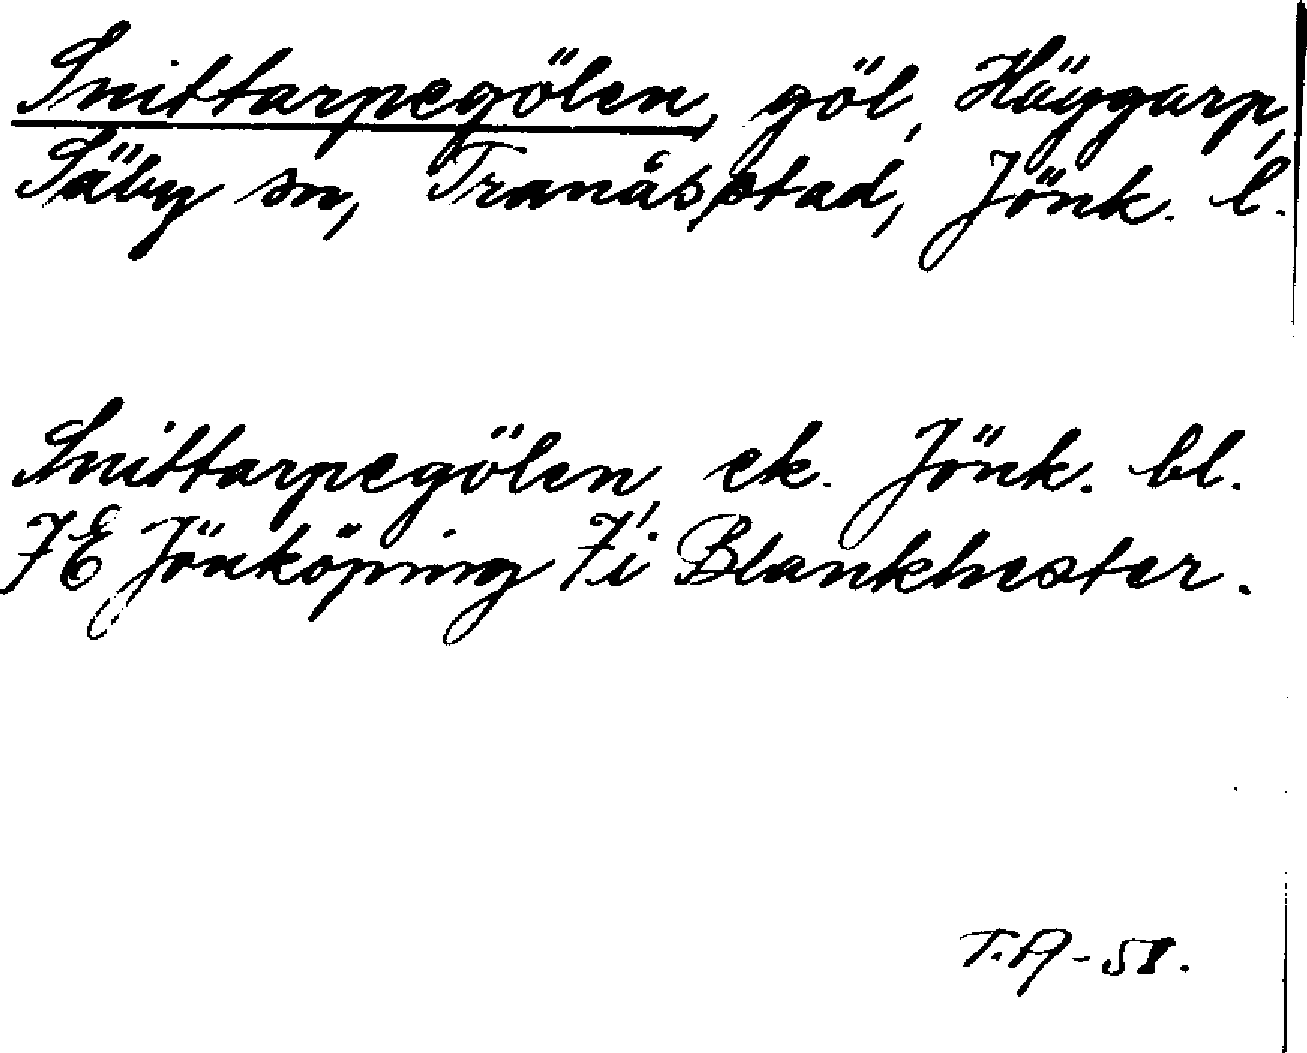 Snittarpegölen, göl, Häggarp,
Säby sn, Tranås, stad, Jönk. l.
Snittarpegölen, ek. Jönk. bl.
7E Jönköping 7i Blankhester.
T.A-51.